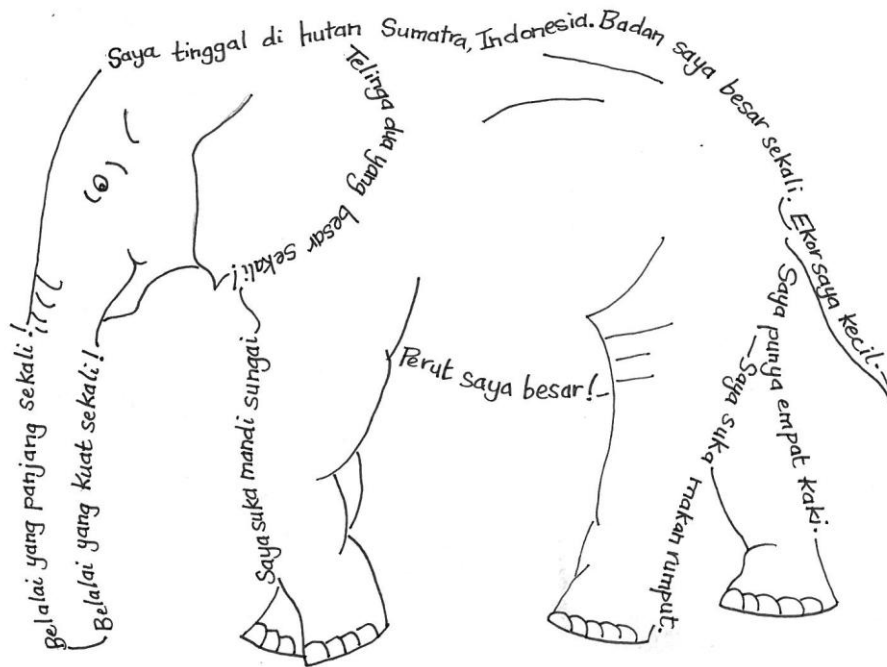 Saya tinggal di hutan Sumatra, Indonesia. Badan saya besar sekali.
Ekor saya kecil.
Telinga dua yang besar sekali!
Belalai yang panjang sekali!
Belalai yang kuat sekali!
Saya suka mandi sungai
Perut saya besar!
Saya suka makan rumput.
Saya punya empat kaki.